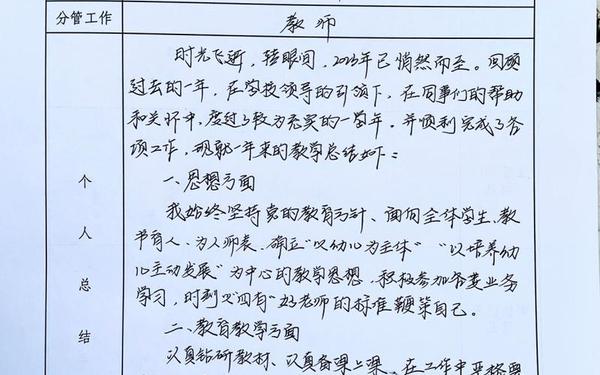 分管工作 教师
个人总结
时光飞逝，转眼间，2023年已悄然而至。回顾
过去的一年，在学校领导的引领下，在同事们的帮助
和关怀中，度过了较为充实的一学年，并顺利完成了各
项工作，现郭一年来的教学总结如下：
一、思想方面
我始终坚持党的教育方针、面向全体学生、教
书育人、为人师表、确立“以幼儿为主体”“以培养幼
儿主动发展”为中心的教学思想，积极参加各类业务
学习，时刻以“四有”好老师的标准鞭策自己。
二、教育教学方面
认真钻研教材、认真备课上课，在工作中严格要